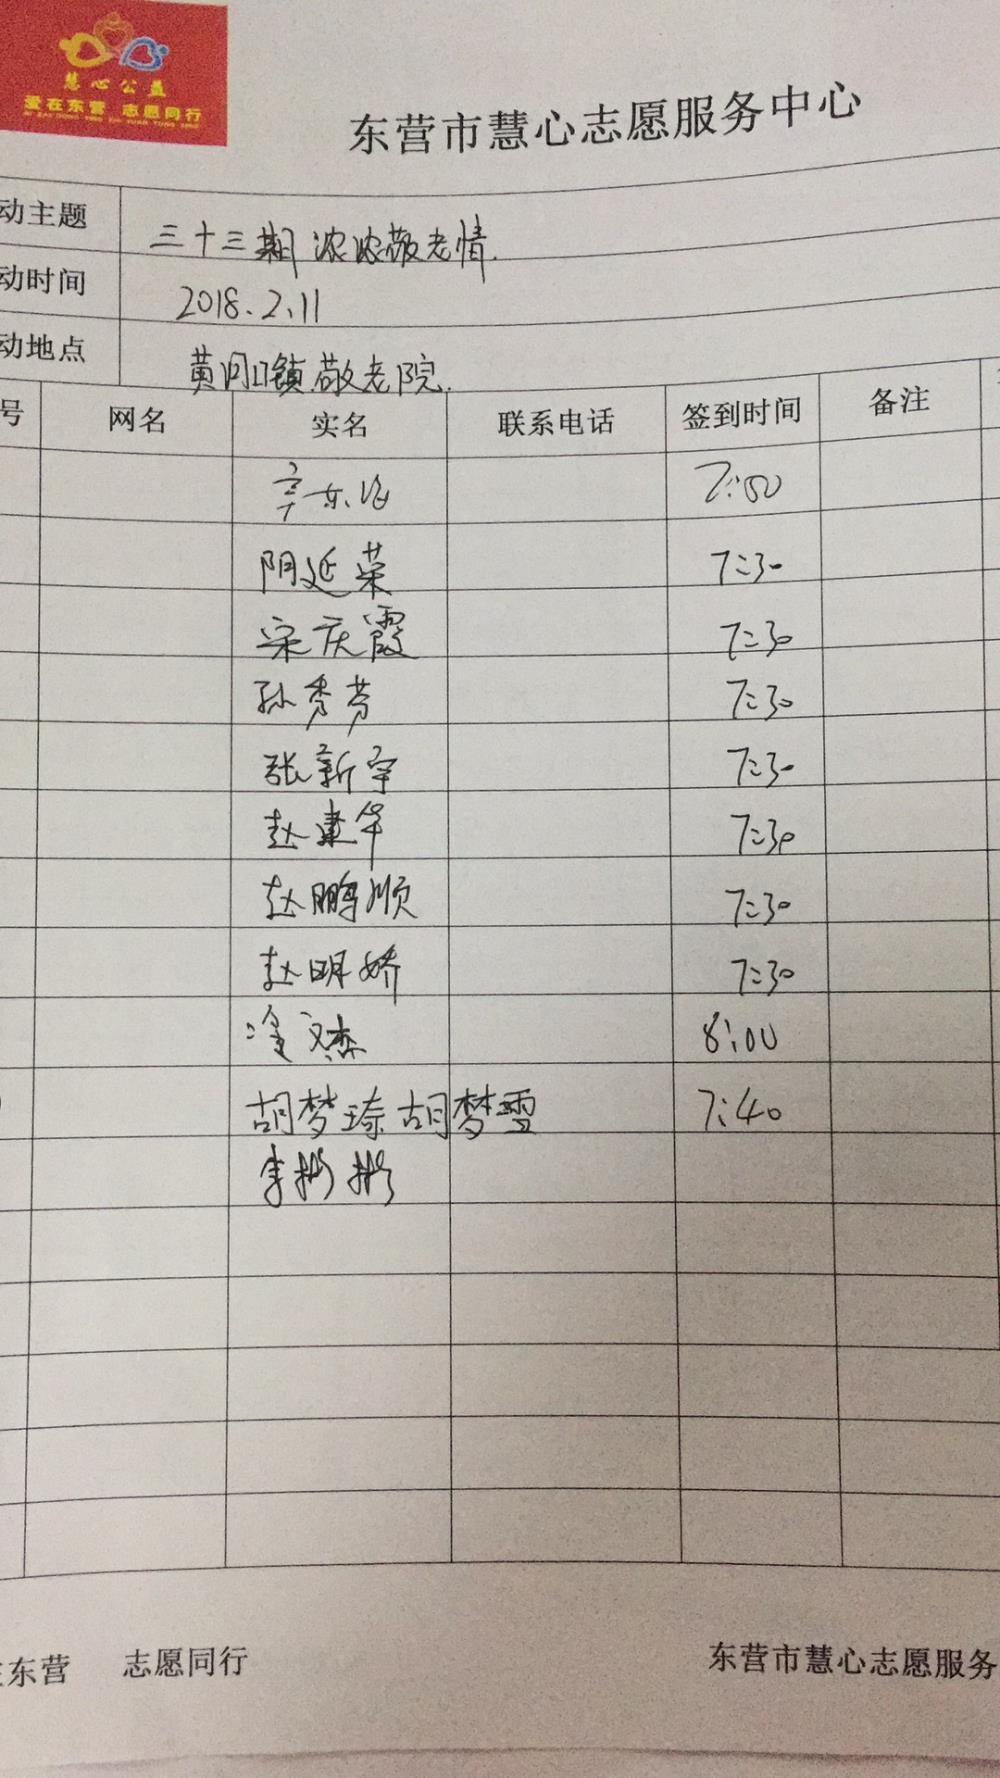 慧心公益
爱在东营 志愿同行
AI ZAI DONG YING ZHI YUAN TONG XING
东营市慧心志愿服务中心
动主题 三十三期 浓浓敬老情.
动时间 2018.2.11
动地点 黄河口镇敬老院.
号 网名 实名 联系电话 签到时间 备注
7:50
阴延荣 7:30
宋庆霞 7:30
孙秀芳 7:30
张新宇 7:30
赵建华 7:30
赵鹏顺 7:30
赵明娇 7:30
冷文杰 8:00
胡梦琦 胡梦雪 7:40
李彬彬
东营 志愿同行 东营市慧心志愿服务